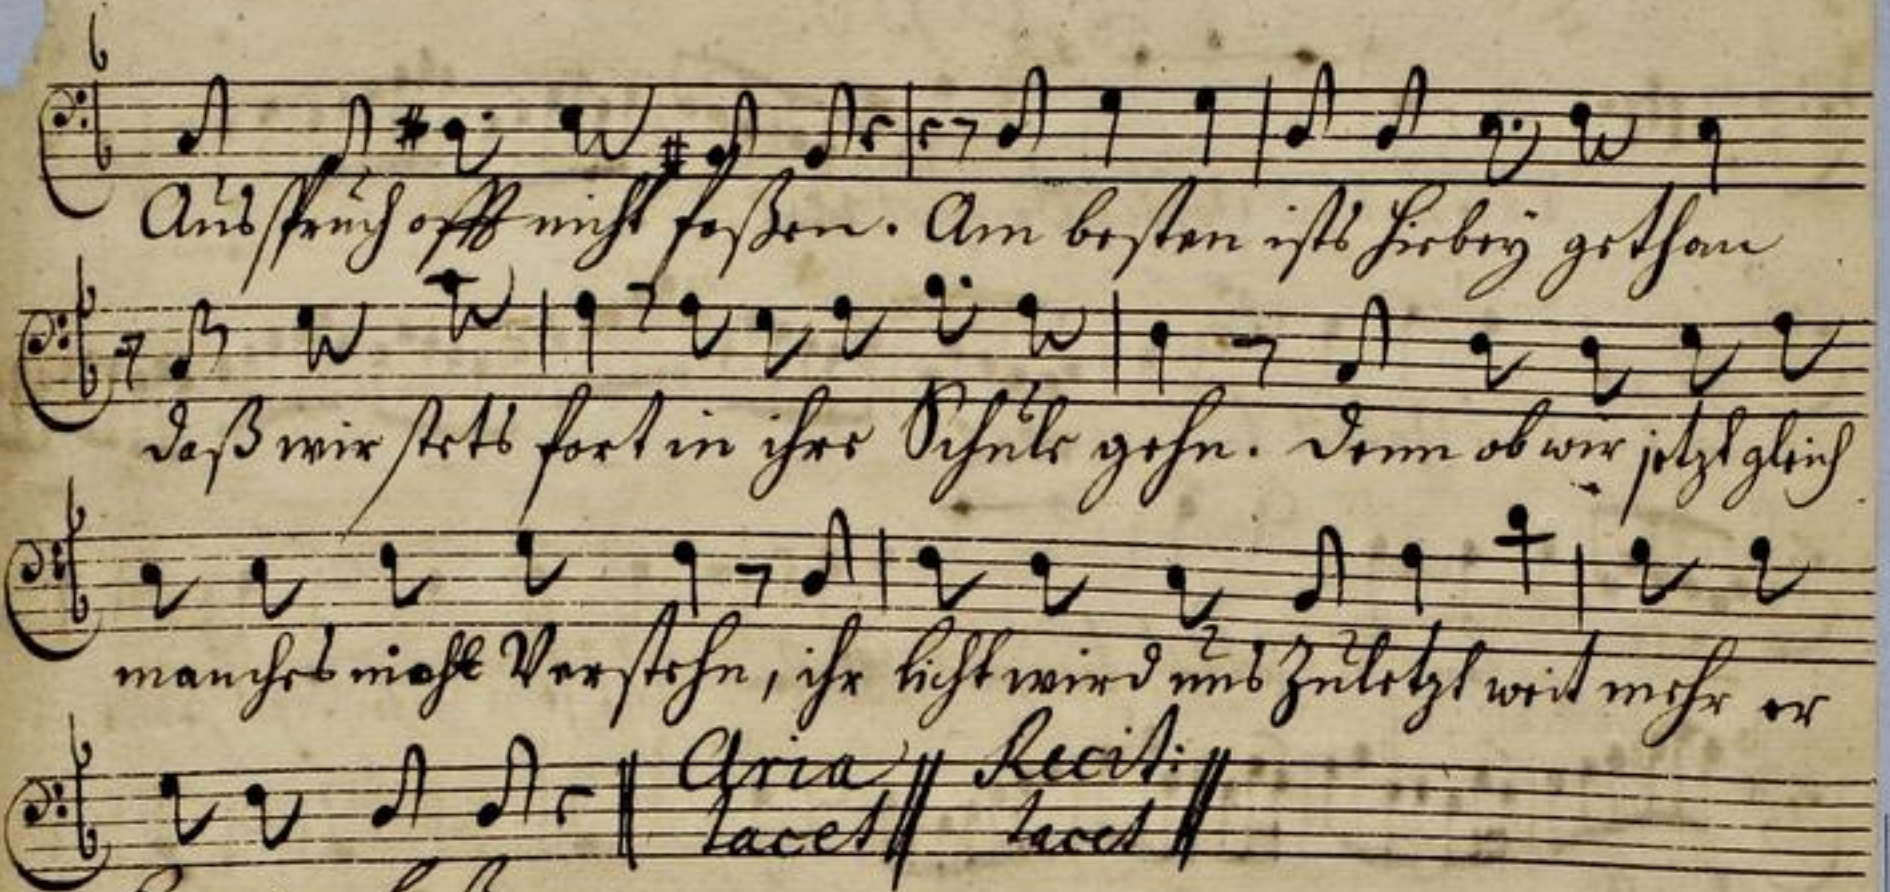 Ausspruch offt nicht faßen. Am besten ists hiebey gethan
daß wir stets fort in ihre Schule gehn. Denn ob wir jetzt gleich
manches nicht Verstehn, ihr licht wird uns Zuletzt weit mehr er
Aria Recit:
tacet tacet